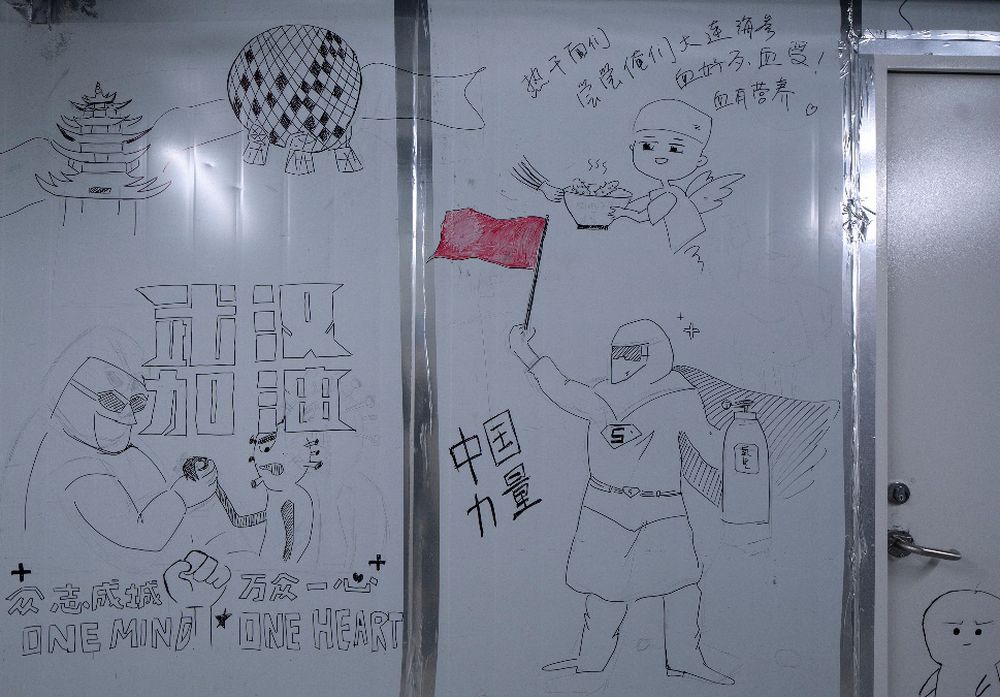 热干面们
尝尝俺们大连海参
血好了,血受!
血有营养
武汉
加油
中国
力量
S
氧气
众志成城 万众一心
ONE MIND ONE HEART